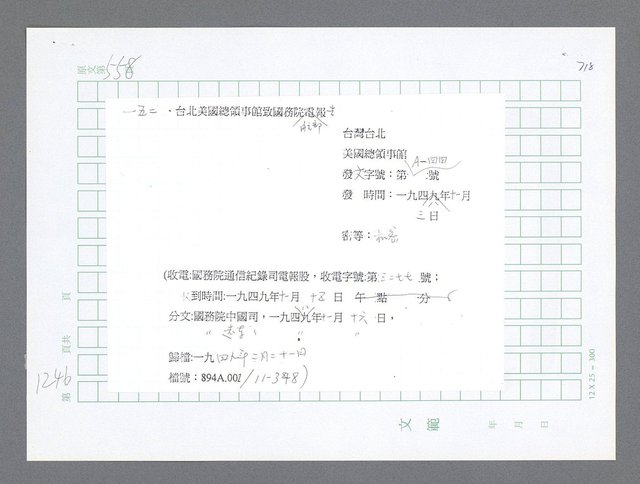 原文第558
718
一五二、台北美國總領事館致國務院電報
台灣台北
美國總領事館
A-一四四
發文字號：第 號
發 時間：一九四九年十一月
三日
密等：
(收電:國務院通信紀錄司電報股，收電字號:第三二七七號；
收到時間:一九四九年十一月 十五 日 午 點 分
分文:國務院中國司，一九四九年十一月 十六 日，
〃 遠東司 〃 〃
歸檔:一九四九年二月二十一日
檔號：894A.001/11-348)
頁
頁共
第
1246
文 範
年 月 日
12 X 25 = 300